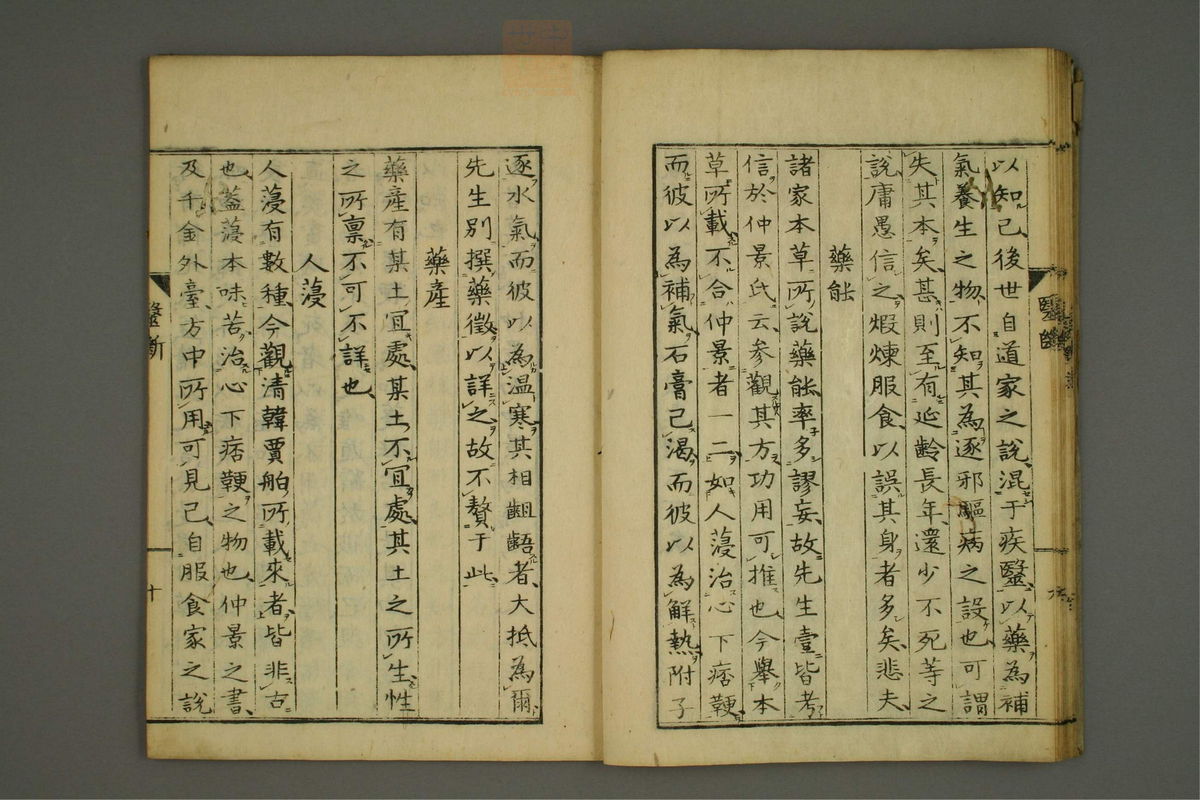 以知已後世自道家之說混于疾醫以藥為補
氣養生之物不知其為逐邪驅病之設也可謂
失其本矣甚則至有延齡長年還少不死等之
說庸愚信之煆煉服食以誤其身者多矣悲夫
藥能
諸家本草所說藥能率多謬妄故先生壹皆考
信於仲景氏云參觀其方功用可推也今舉本
草所載不合仲景者一二如人薓治心下痞鞕
而彼以為補氣石膏已渴而彼以為解熱附子
逐水氣而彼以為温寒其相齟齬者大抵為爾
先生別撰藥徵以詳之故不贅于此
藥產
藥產有某土冝處某土不冝處其土之所生性
之所禀不可不詳也
人薓
人薓有數種今觀清韓賈舶所載來者皆非古
也蓋薓本味苦治心下痞鞕之物也仲景之書
及千金外臺方中所用可見已自服食家之說
醫斷
十